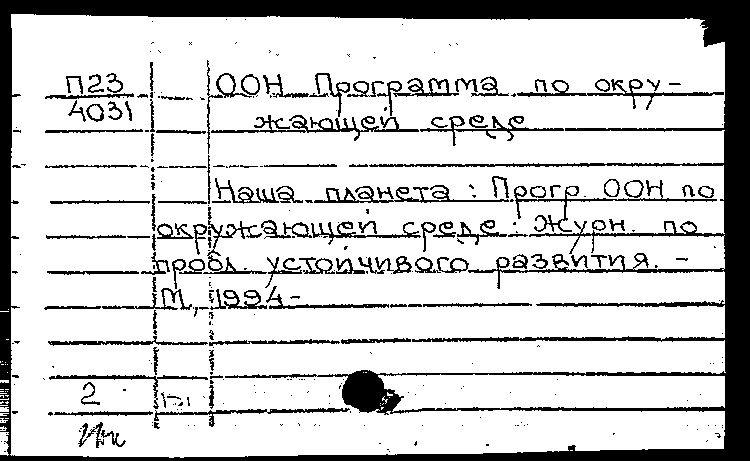 П23 ООН Программа по окру-
4031 жающей среде
Наша планета : Прогр. ООН по
окружающей среде : Журн. по
пробл. устойчивого развития. -
М., 1994-
2